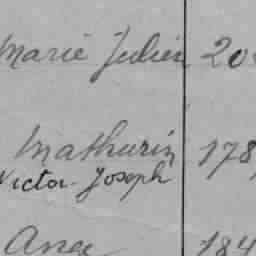 Marie Julien 20
Mathurin 178
Victor Joseph
184